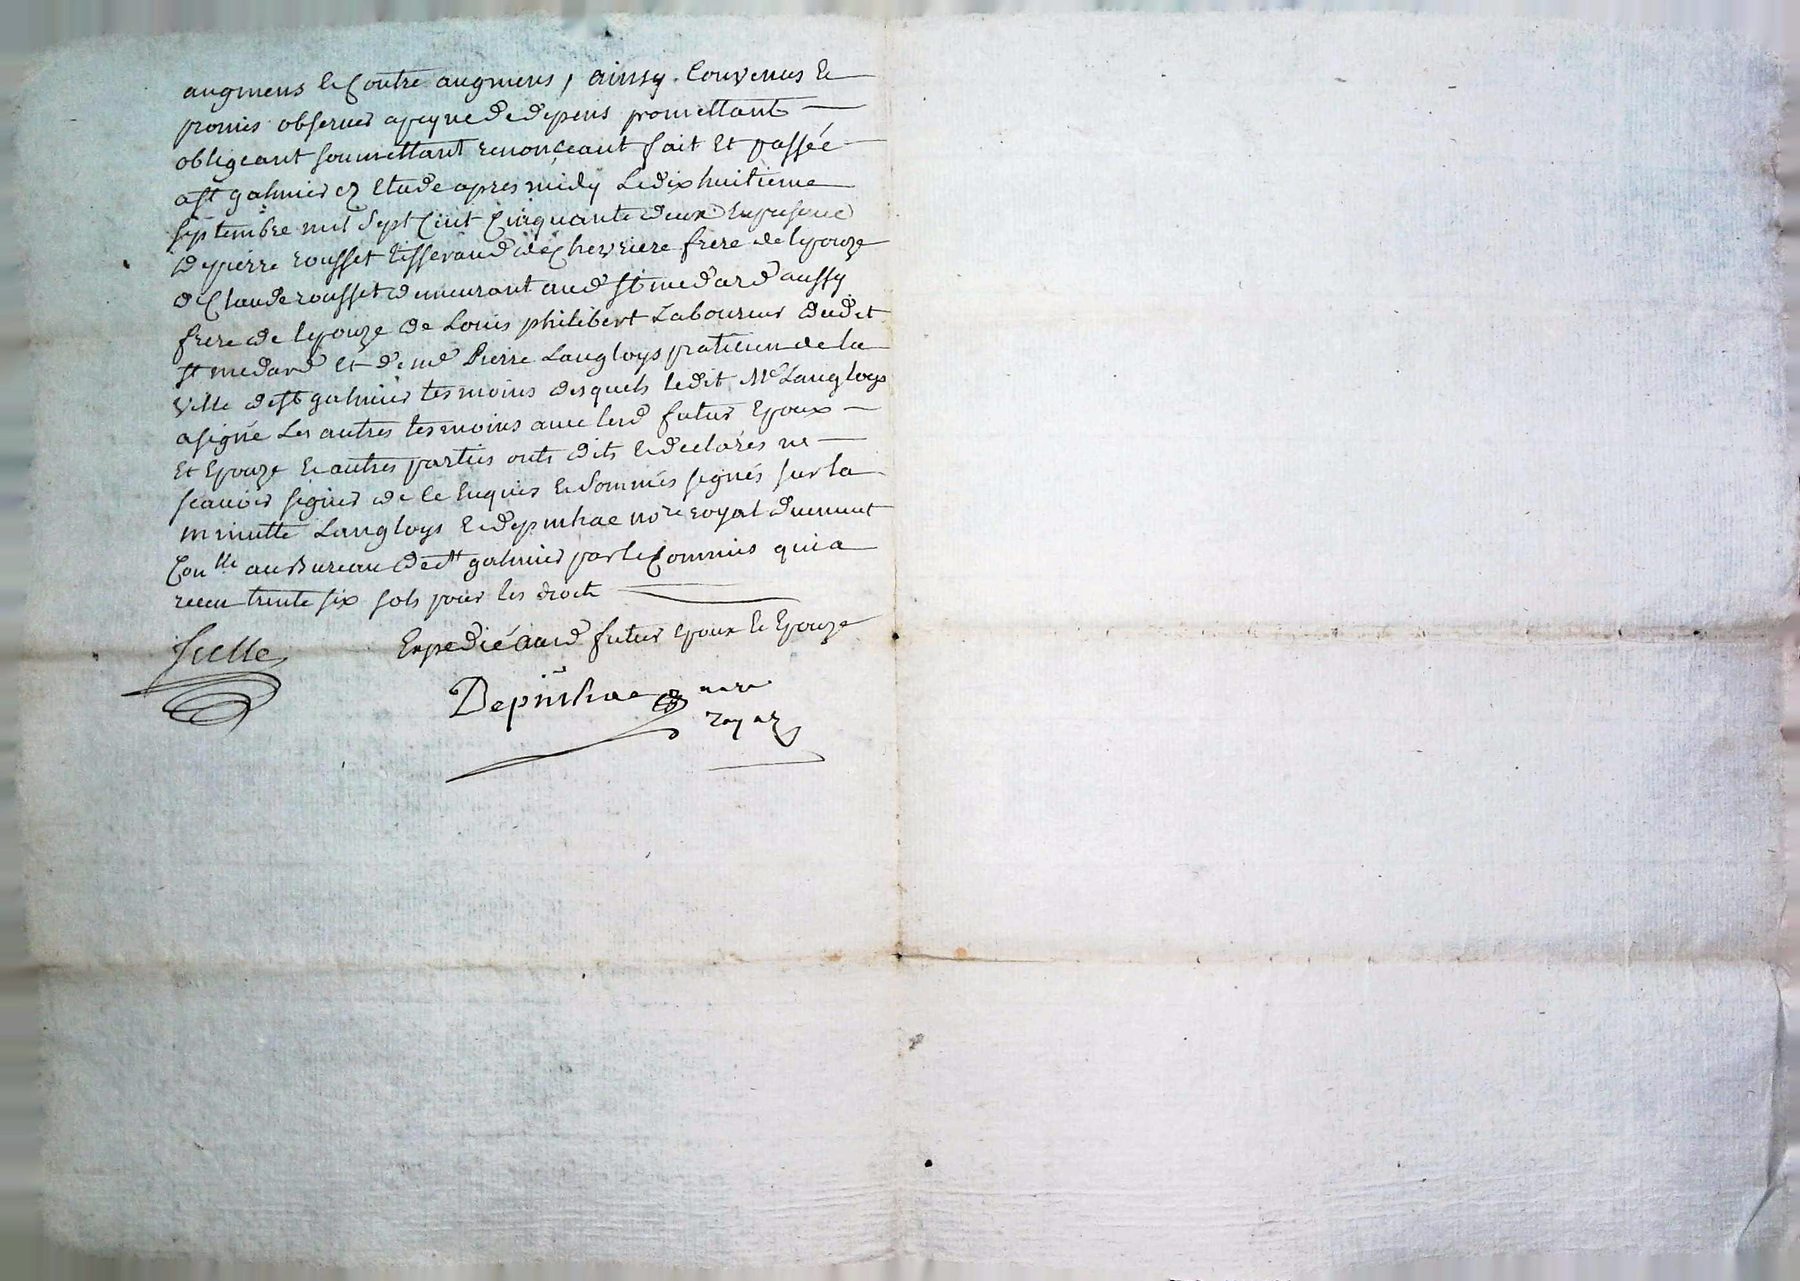 augmens et Contre augmens, ainsy Convenus et
promis observer a peyne de depens promettant
obligeant soumettant renonceant fait et passée
a st galmier Etude apres midy Le dix huitieme
septembre mil sept Cent Cinquante deux En presence
de pierre rousset tisserand de Chevriere frere de lepouze
de Claude rousset demeurant aud st medard aussy
frere de lepouze de Louis philibert Laboureur dudit
st medard et de me Pierre Langloys praticien de la
Ville de st galmier tesmoins desquels ledit Me Langloys
a signé Les autres tesmoins avec lesd futur Epoux
Et Epouze et autres parties onts dits et declarés ne
scavoir signer de ce Enquis et sommés signés sur la
minutte Langloys et depinhac nore royal duement
Conlle au Bureau de st galmier par le Commis qui a
receu trente six sols pour les droits
Expedié aud futur epoux et Epouze
Depinhac nore
royal